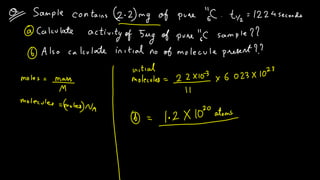 Q. Sample contains (2.2) mg of pure ¹¹₆C. t₁/₂ = 1224 seconds
ⓐ Calculate activity of 5μg of pure ¹¹₆C sample??
ⓑ Also calculate initial no of molecule present??
moles = mass/M
molecules = (moles) NA
initial
molecules = 2.2×10⁻³/11 × 6.023×10²³
ⓑ = 1.2 × 10²⁰ atoms